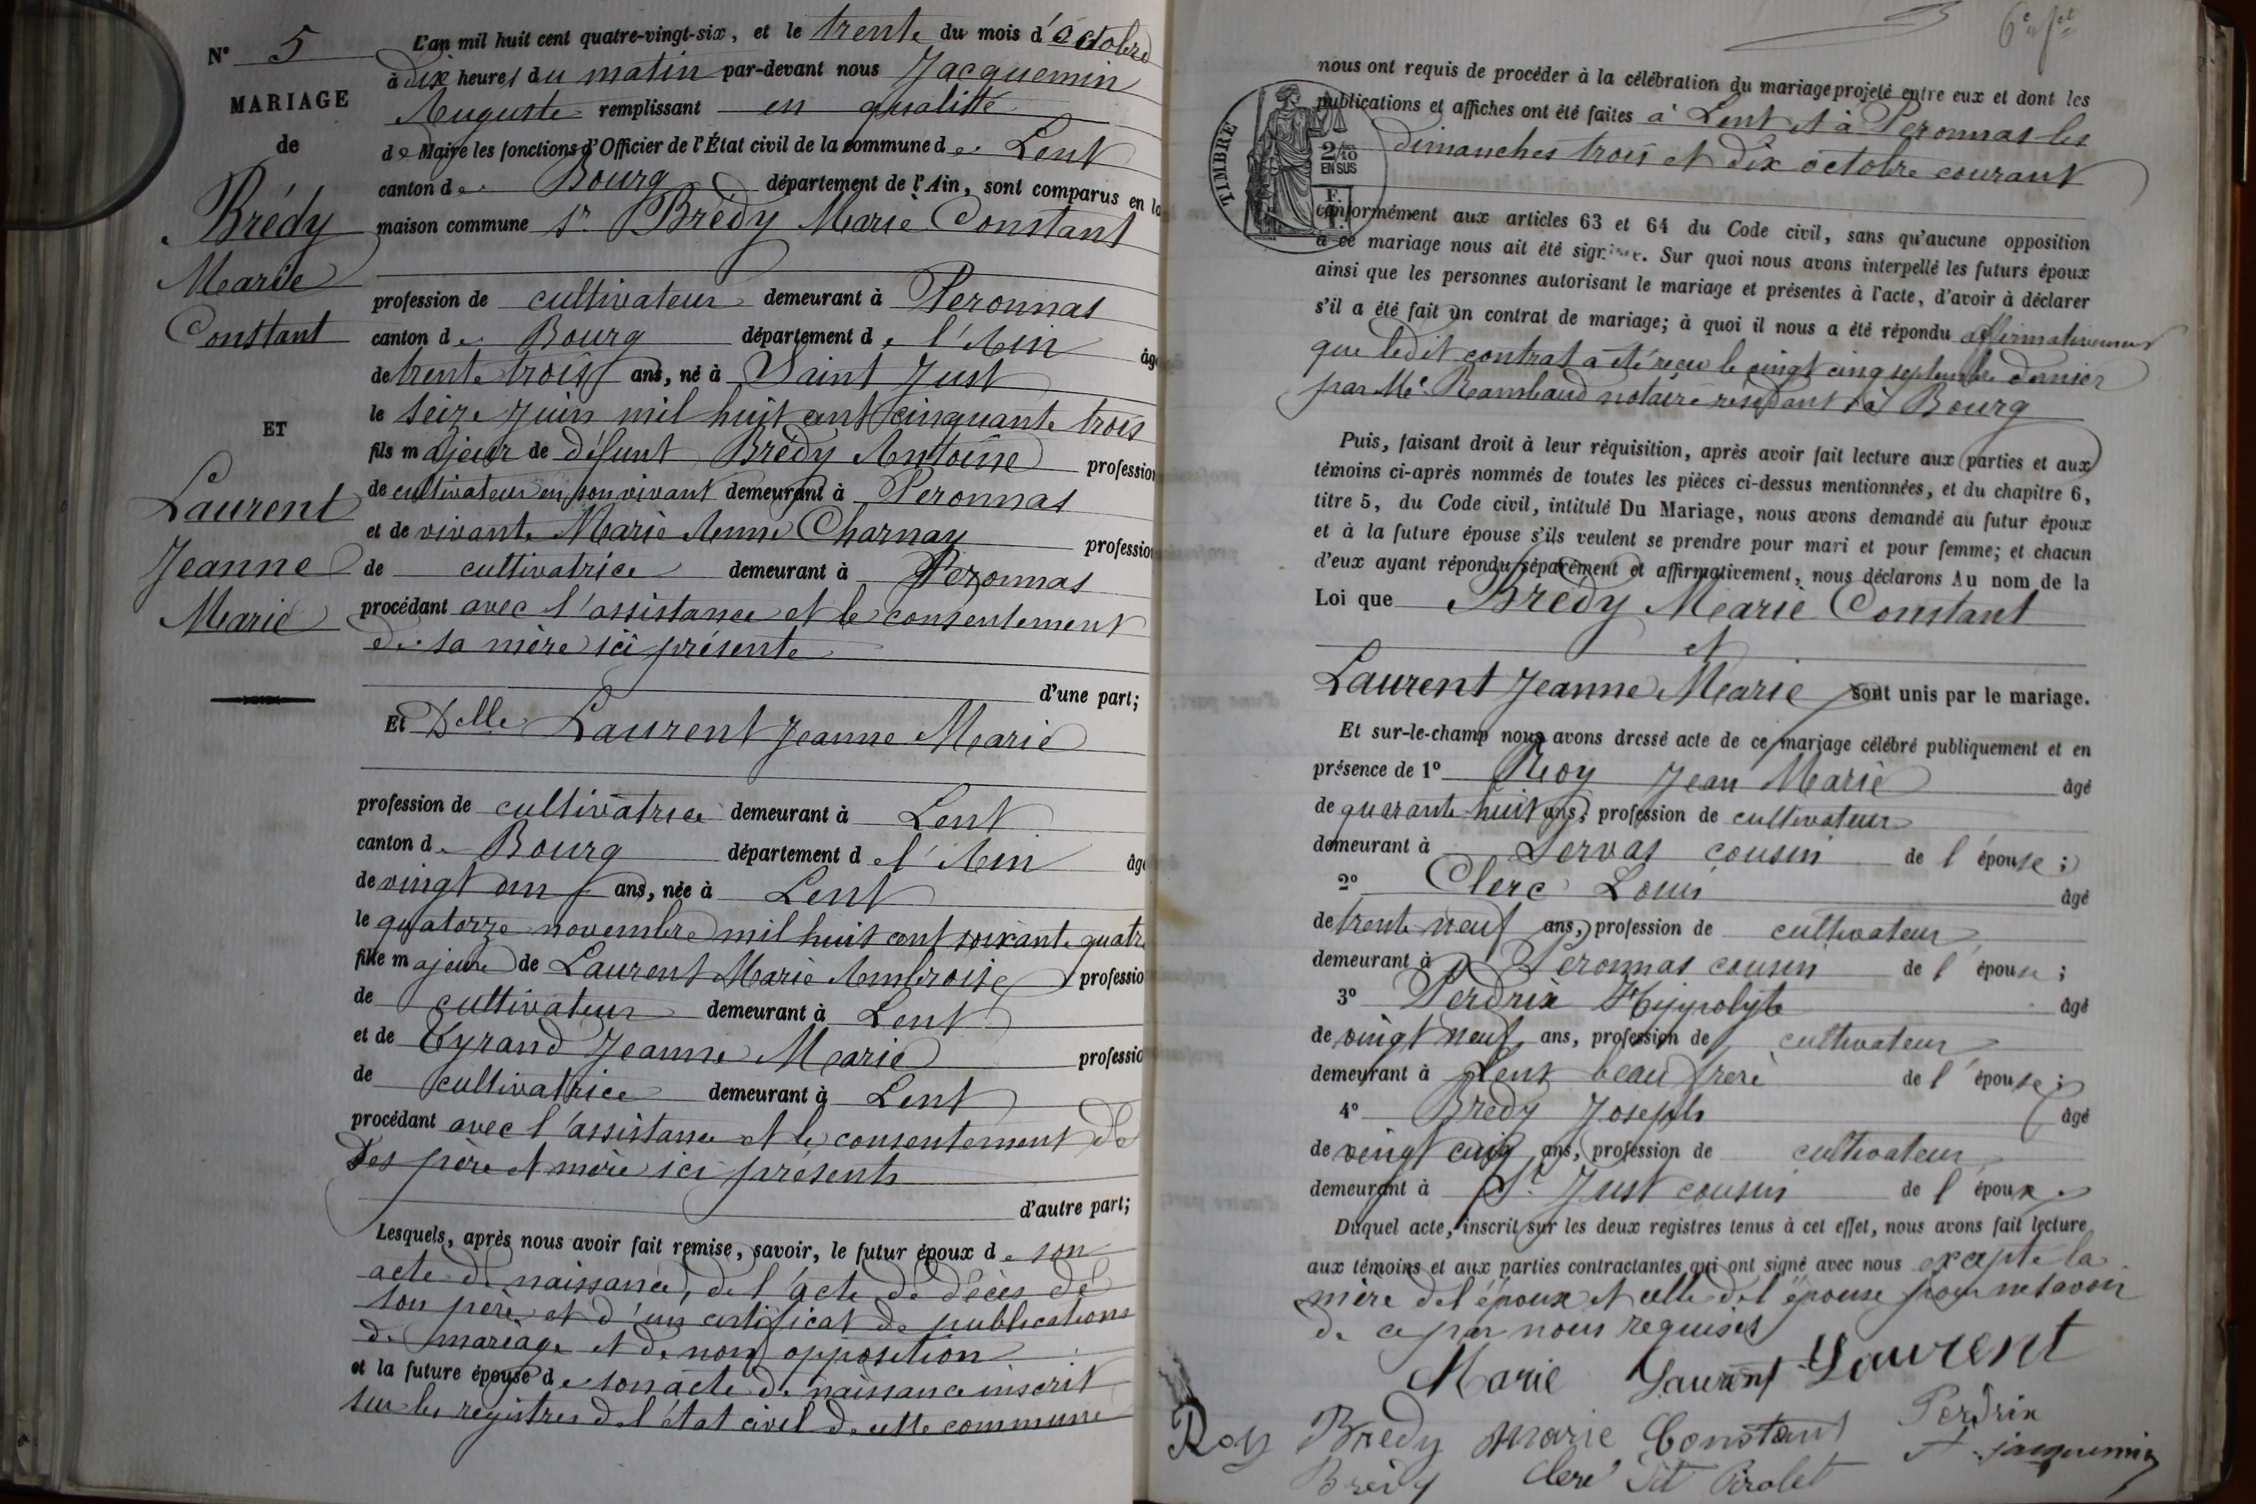 N° 5
MARIAGE
de
Brédy
Marie
Constant
ET
Laurent
Jeanne
Marie
L'an mil huit cent quatre-vingt-six, et le trente du mois d'octobre
à dix heures du matin par-devant nous Jacquemin
Auguste remplissant en qualité
de Maire les fonctions d'Officier de l'État civil de la commune de Lent
canton de Bourg département de l'Ain, sont comparus en la
maison commune Sr Brédy Marie Constant
profession de cultivateur demeurant à Péronnas
canton de Bourg département de l'Ain âgé
de trente trois ans, né à Saint Just
le seize juin mil huit cent cinquante trois
fils majeur de défunt Brédy Antoine profession
de cultivateur en son vivant demeurant à Péronnas
et de vivante Marie Anne Charnay profession
de cultivatrice demeurant à Péronnas
procédant avec l'assistance et le consentement
de sa mère ici présente
d'une part;
Et Delle Laurent Jeanne Marie
profession de cultivatrice demeurant à Lent
canton de Bourg département de l'Ain âgé
de vingt un ans, née à Lent
le quatorze novembre mil huit cent soixante quatre
fille majeure de Laurent Marie Ambroise profession
de cultivateur demeurant à Lent
et de Eyrand Jeanne Marie profession
de cultivatrice demeurant à Lent
procédant avec l'assistance et le consentement de
ses père et mère ici présents
d'autre part;
Lesquels, après nous avoir fait remise, savoir, le futur époux de son
acte de naissance, de l'acte de décès de
son père et d'un certificat de publications
de mariage et de non opposition
et la future épouse de son acte de naissance inscrit
sur les registres de l'état civil de cette commune
6e fet
TIMBRE
2/10
EN SUS
nous ont requis de procéder à la célébration du mariage projeté entre eux et dont les
publications et affiches ont été faites à Lent et à Péronnas les
dimanches trois et dix octobre courant
conformément aux articles 63 et 64 du Code civil, sans qu'aucune opposition
à ce mariage nous ait été signifiée. Sur quoi nous avons interpellé les futurs époux
ainsi que les personnes autorisant le mariage et présentes à l'acte, d'avoir à déclarer
s'il a été fait un contrat de mariage; à quoi il nous a été répondu affirmativement
que ledit contrat a été reçu le vingt cinq septembre dernier
par Me Rambaud notaire résidant à Bourg
Puis, faisant droit à leur réquisition, après avoir fait lecture aux parties et aux
témoins ci-après nommés de toutes les pièces ci-dessus mentionnées, et du chapitre 6,
titre 5, du Code civil, intitulé Du Mariage, nous avons demandé au futur époux
et à la future épouse s'ils veulent se prendre pour mari et pour femme; et chacun
d'eux ayant répondu séparément et affirmativement, nous déclarons Au nom de la
Loi que Brédy Marie Constant
et
Laurent Jeanne Marie sont unis par le mariage.
Et sur-le-champ nous avons dressé acte de ce mariage célébré publiquement et en
présence de 1° Roy Jean Marie âgé
de quarante huit ans, profession de cultivateur
demeurant à Servas cousin de l'épouse;
2° Clerc Louis âgé
de trente neuf ans, profession de cultivateur
demeurant à Péronnas cousin de l'épouse;
3° Perdrix Hyppolyte âgé
de vingt neuf ans, profession de cultivateur
demeurant à Lent beau frère de l'épouse;
4° Brédy Joseph âgé
de vingt cinq ans, profession de cultivateur
demeurant à St Just cousin de l'époux.
Duquel acte, inscrit sur les deux registres tenus à cet effet, nous avons fait lecture
aux témoins et aux parties contractantes qui ont signé avec nous excepté la
mère de l'époux et celle de l'épouse pour ne savoir
de ce par nous requises
Marie Laurent Laurent
Roy Brédy Marie Constant Perdrix
Brédy Clerc dit Pirolet A. Jacquemin